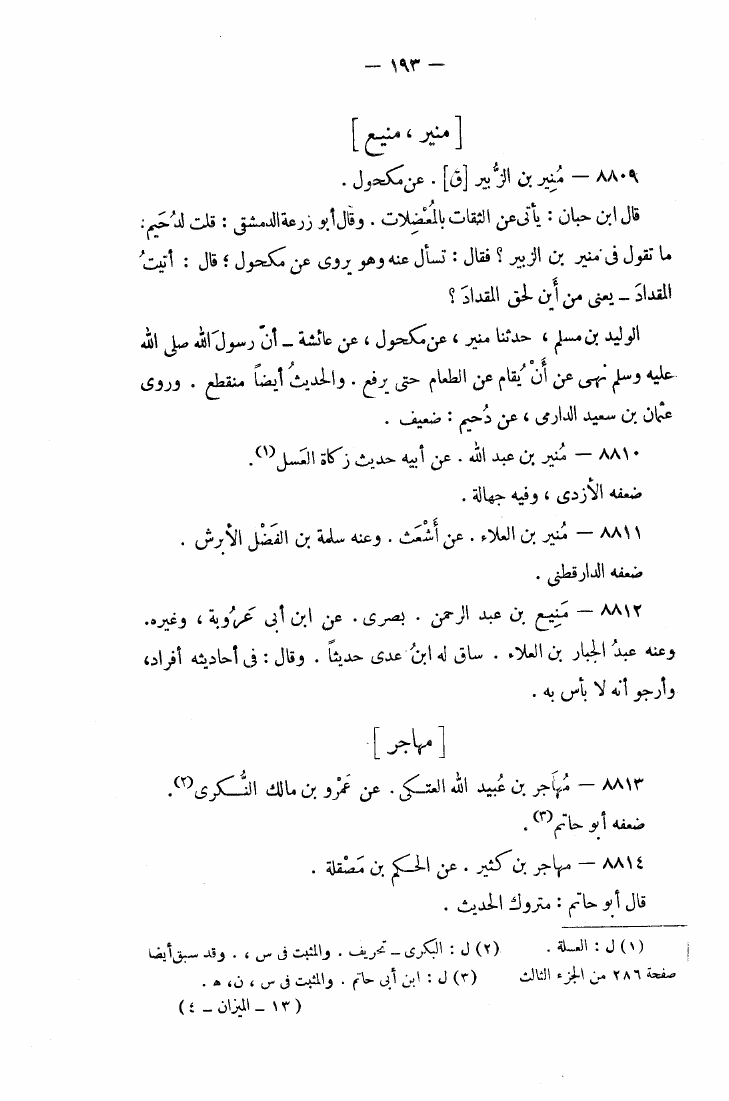 — ١٩٣ —
[ منير ، منيع ]
٨٨٠٩ — مُنِير بن الزُّبير [ق] . عن مكحول .
قال ابن حبان : يأتى عن الثقات بالمُعْضِلات . وقال أبو زرعة الدمشقى : قلت لدُحَيم :
ما تقول فى منير بن الزبير ؟ فقال : تسأل عنه وهو يروى عن مكحول ؛ قال : أتيتُ
المقدادَ – يعنى من أَين لحق المقدادَ ؟
الوليد بن مسلم ، حدثنا منير ، عن مكحول ، عن عائشة – أنّ رسولَ الله صلى الله
عليه وسلم نهى عن أَنْ يُقام عن الطعام حتى يرفع . والحديثُ أيضاً منقطع . وروى
عثمان بن سعيد الدارمى ، عن دُحيم : ضعيف .
٨٨١٠ — مُنير بن عبد الله . عن أبيه حديث زكاة العَسل(١).
ضعفه الأزدى ، وفيه جهالة .
٨٨١١ — مُنير بن العلاء . عن أَشْعَث . وعنه سلمة بن الفَضْل الأبرش .
ضعفه الدارقطنى .
٨٨١٢ — مَنِيع بن عبد الرحمن . بصرى . عن ابن أبى عَرُوبة ، وغيره.
وعنه عبدُ الجبار بن العلاء . ساق له ابنُ عدى حديثاً . وقال : فى أحاديثه أفراد،
وأرجو أنه لا بأس به .
[ مهاجر ]
٨٨١٣ — مُهَاجر بن عُبيد الله العتكى . عن عَمْرو بن مالك النُّكرى(٢).
ضعفه أبو حاتم(٣).
٨٨١٤ — مهاجر بن كثير . عن الحكم بن مَصْقلة .
قال أبو حاتم : متروك الحديث .
(١) ل : العسلة . (٢) ل : البكرى – تحريف . والمثبت فى س ، . وقد سبق أيضا
صفحة ٢٨٦ من الجزء الثالث (٣) ل : ابن أبى حاتم . والمثبت فى س ، ن، ه .
( ١٣ – الميزان – ٤ )